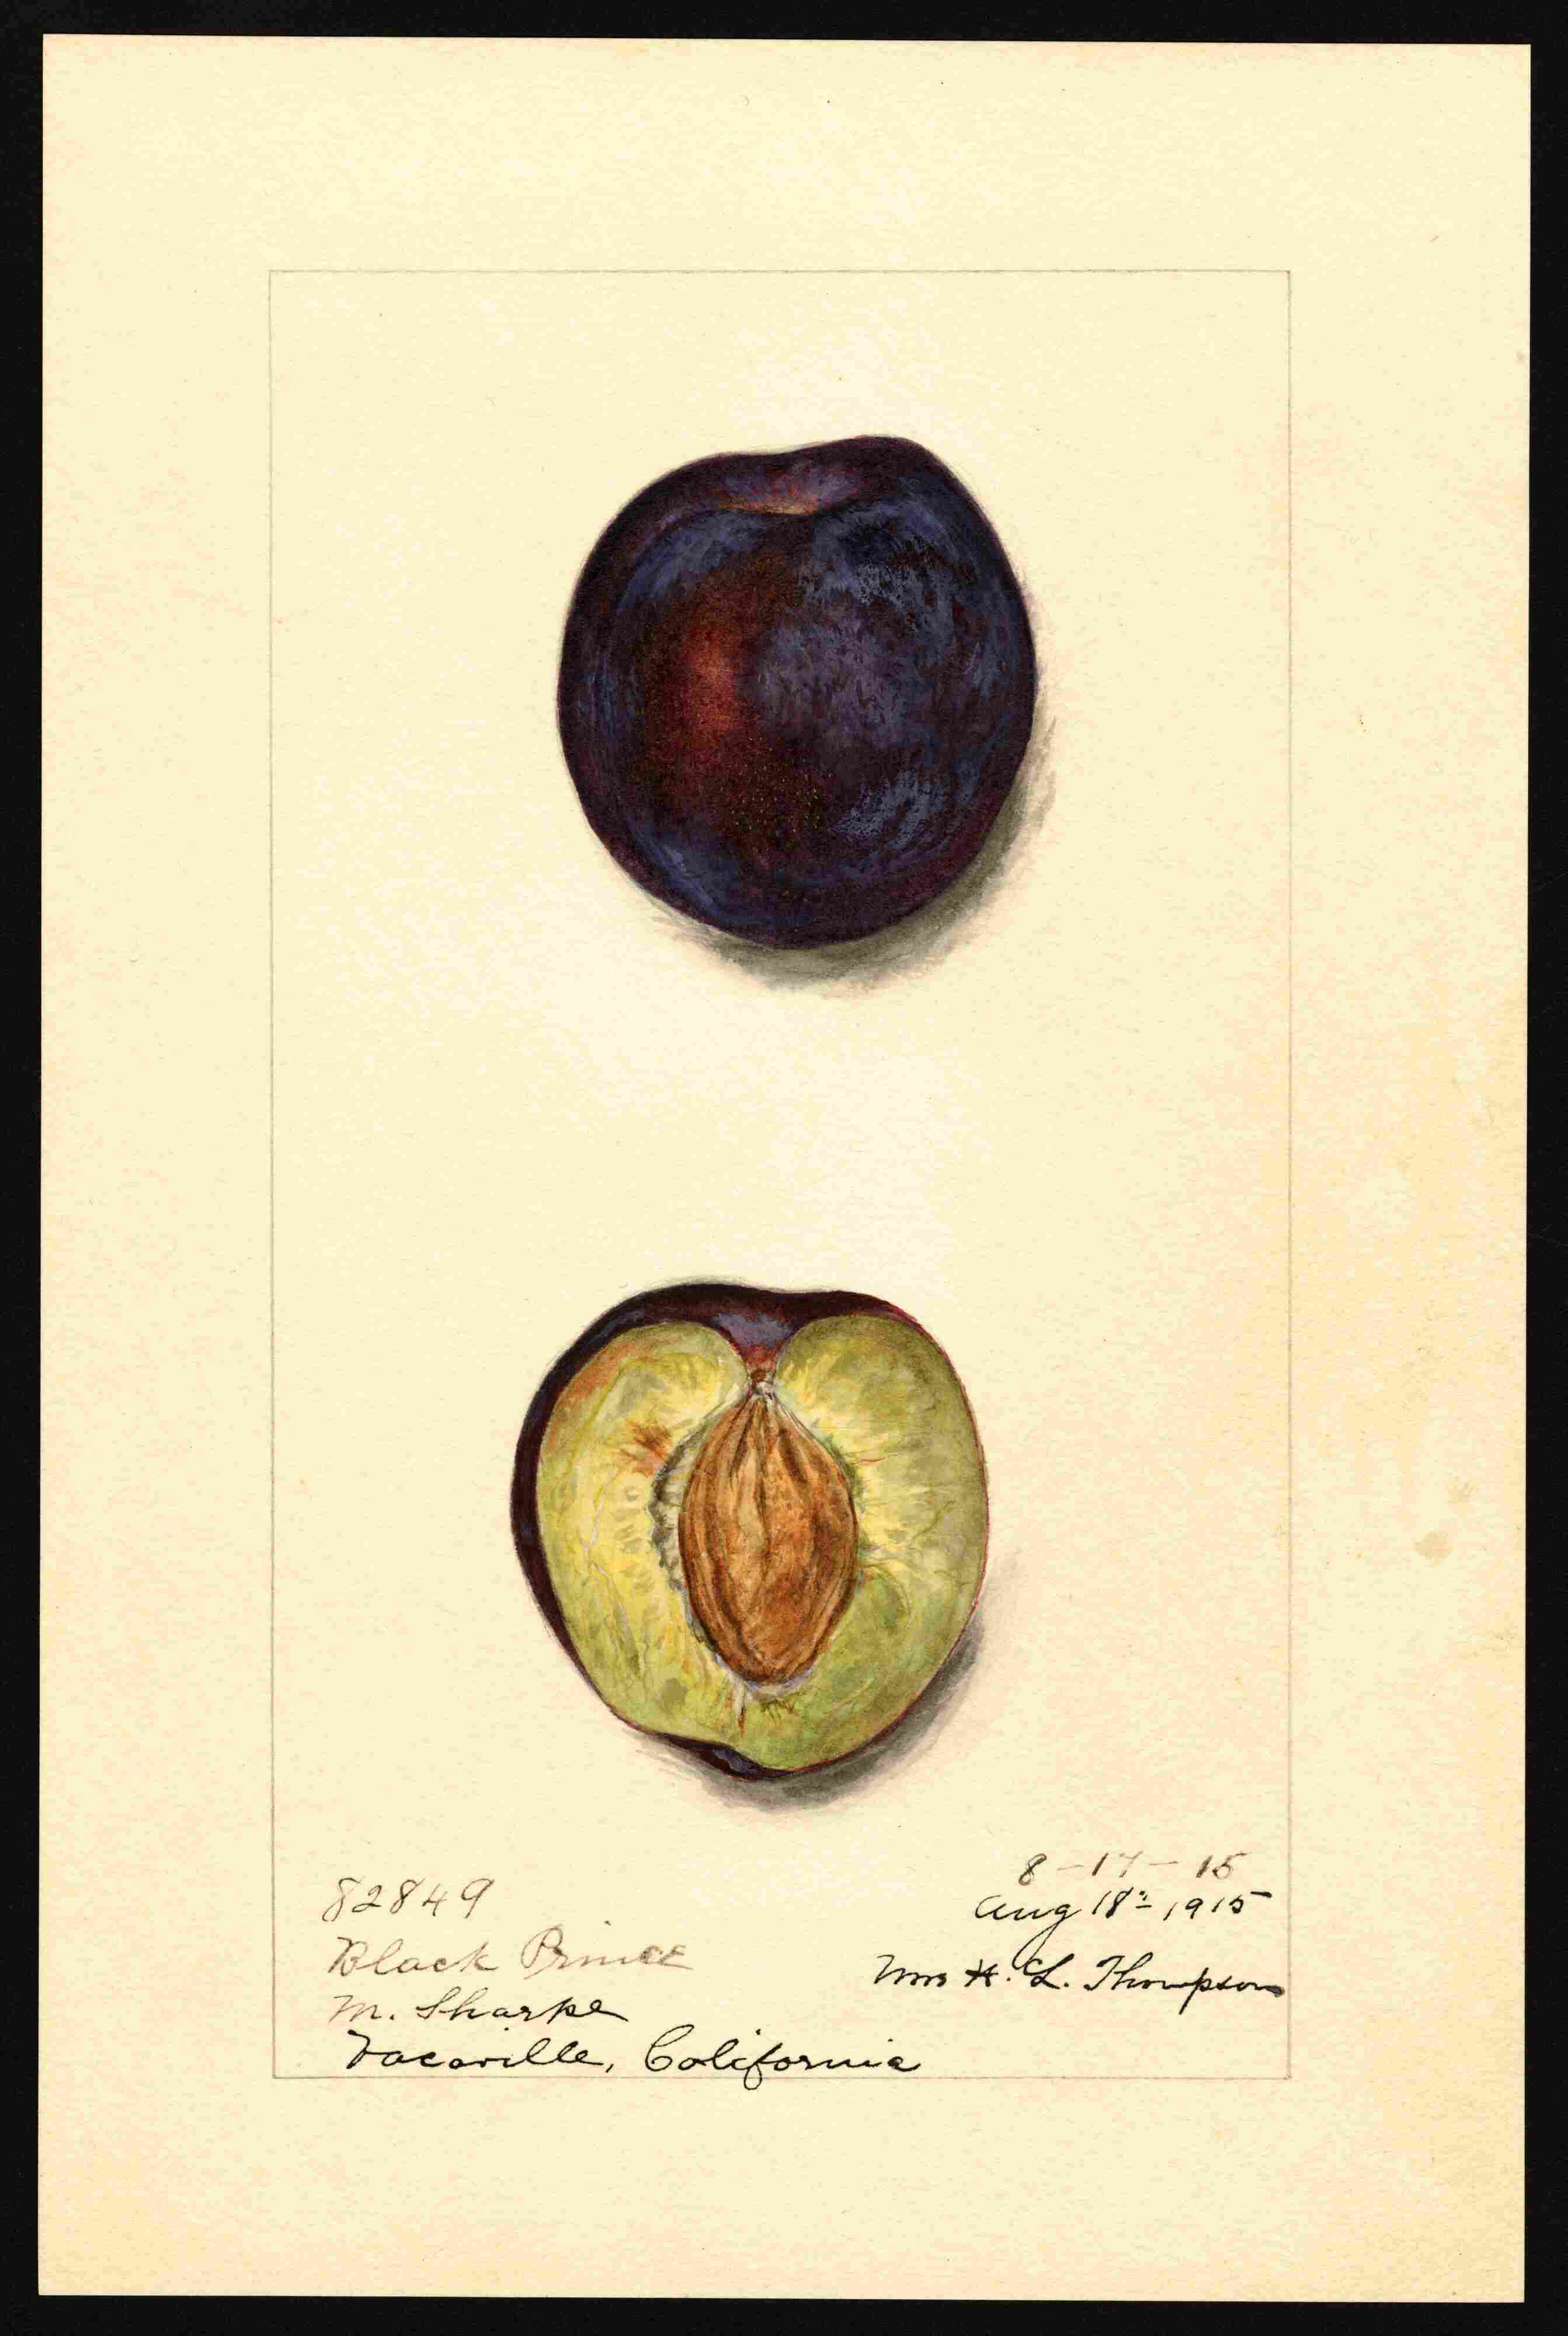 82849
Black Prince
M. Sharpe
Vacaville, California
8-17-15
Aug 18th 1915
Mrs H. L. Thompson